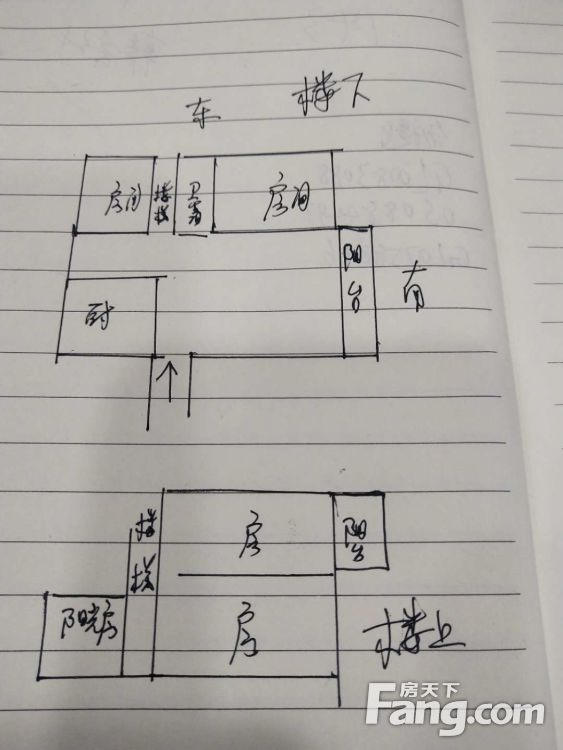 东 楼下
房间 楼梯 卫 房间
阳台
厨 南
楼梯 房 阳台
阳光房 房 楼上
房天下
Fang.com